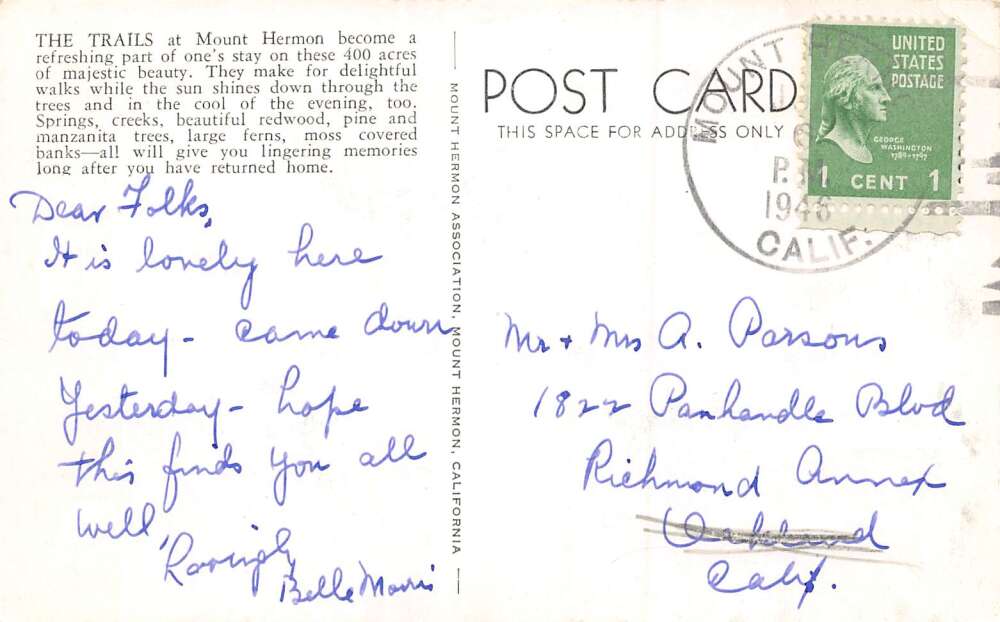 THE TRAILS at Mount Hermon become a
refreshing part of one's stay on these 400 acres
of majestic beauty. They make for delightful
walks while the sun shines down through the
trees and in the cool of the evening, too.
Springs, creeks, beautiful redwood, pine and
manzanita trees, large ferns, moss covered
banks—all will give you lingering memories
long after you have returned home.
Dear Folks,
It is lovely here
today - came down
Yesterday - hope
this finds you all
well,
Lovingly
Belle Morris
MOUNT HERMON ASSOCIATION, MOUNT HERMON, CALIFORNIA
POST CARD
THIS SPACE FOR ADDRESS ONLY
MOUNT
P.M
1946
CALIF.
UNITED
STATES
POSTAGE
GEORGE
WASHINGTON
1789-1797
1 CENT 1
Mr + Mrs A. Parsons
1822 Panhandle Blvd
Richmond Annex
Oakland
Calif.